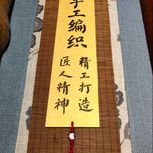 手工编织
精工打造
匠人精神